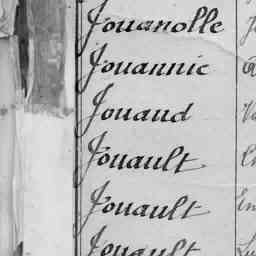 Jouanolle
Jouannic
Jouaud
Jouault
Jouault
Jouault